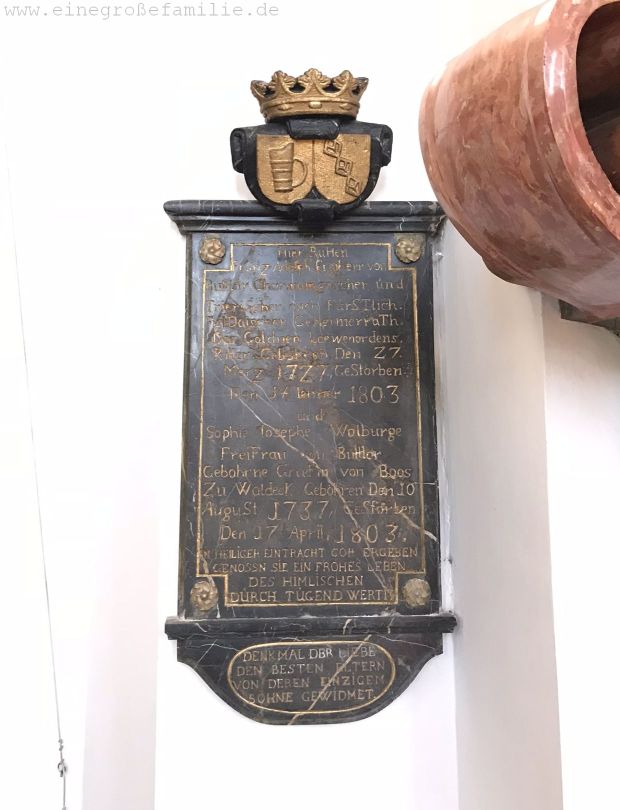 www.einegroßefamilie.de
Hier Ruhen
Franz Freyherr von
und
FürSTlich.
GeheimerraTh.
Des Goldnen Loewenordens.
Gebohren Den 27.
Merz 1727, GeStorben
Den 1803
und
Sophie Josephe Walburge
FreiFrau von Buttlar
Gebohrne Graefin von Boos
Zu Waldeck Gebohren Den 10
AuguST 1737, GeStorben
Den 17 April, 1803.
IN HEILIGER EINTRACHT GOTT ERGEBEN
GENOSSN SIE EIN FROHES LEBEN
DES HIMLISCHEN
DURCH TUGEND WERTH
DENKMAL DER LIEBE
DEN BESTEN ELTERN
VON DEREN EINZIGEM
SOHNE GEWIDMET.